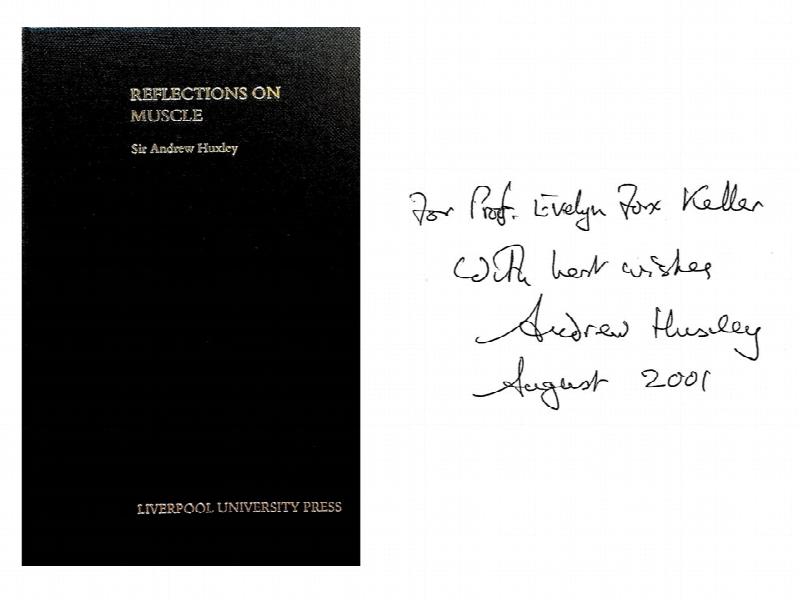 REFLECTIONS ON
MUSCLE
Sir Andrew Huxley
LIVERPOOL UNIVERSITY PRESS
For Prof. Evelyn Fox Keller
With best wishes
Andrew Huxley
August 2001